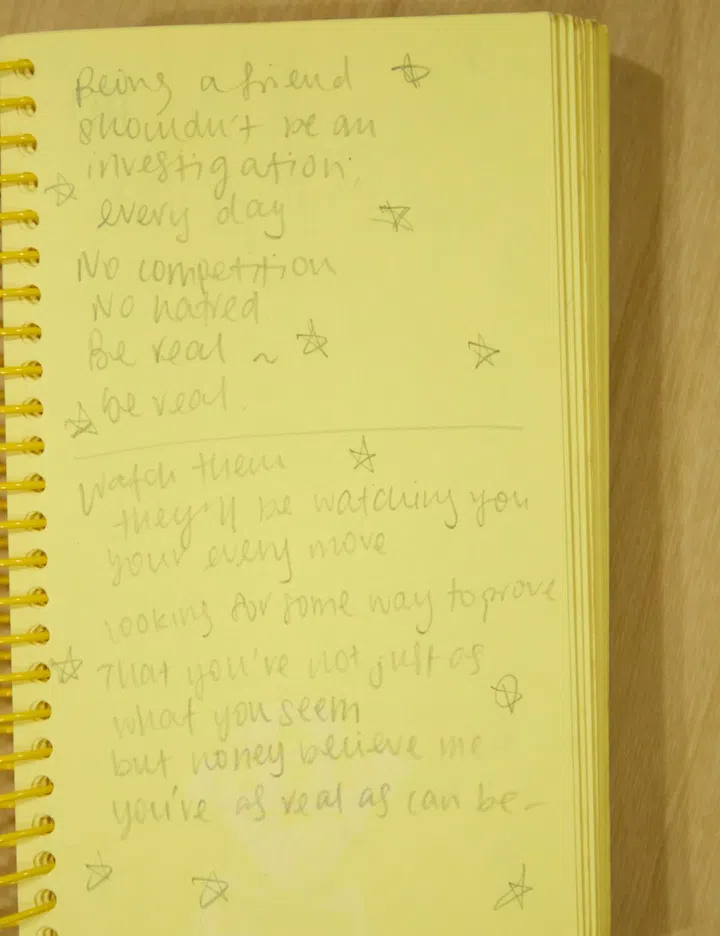 Being a friend
shouldn't be an
investigation,
every day
No competition
No hatred
Be real ~
be real.
Watch them
they'll be watching you
your every move
looking for some way to prove
That you're not just as
what you seem
but honey believe me
you're as real as can be –